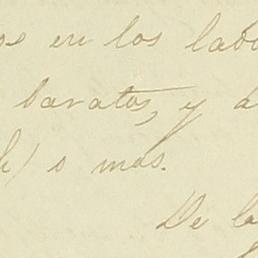 os en los labo
baratos, y a
) o mas.
De la